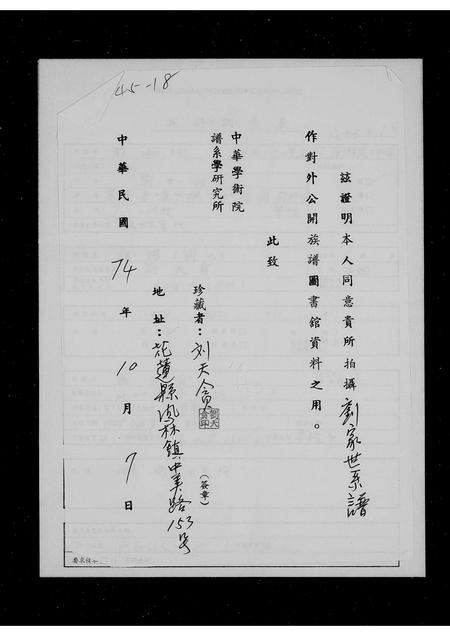 45-18
茲證明本人同意貴所拍攝劉家世系譜
作對外公開族譜圖書館資料之用。
此致
中華學術院
譜系學研究所
珍藏者：刘天貪（簽章）
地址：花蓮縣鳳林鎮中美路153号
中華民國74年10月7日